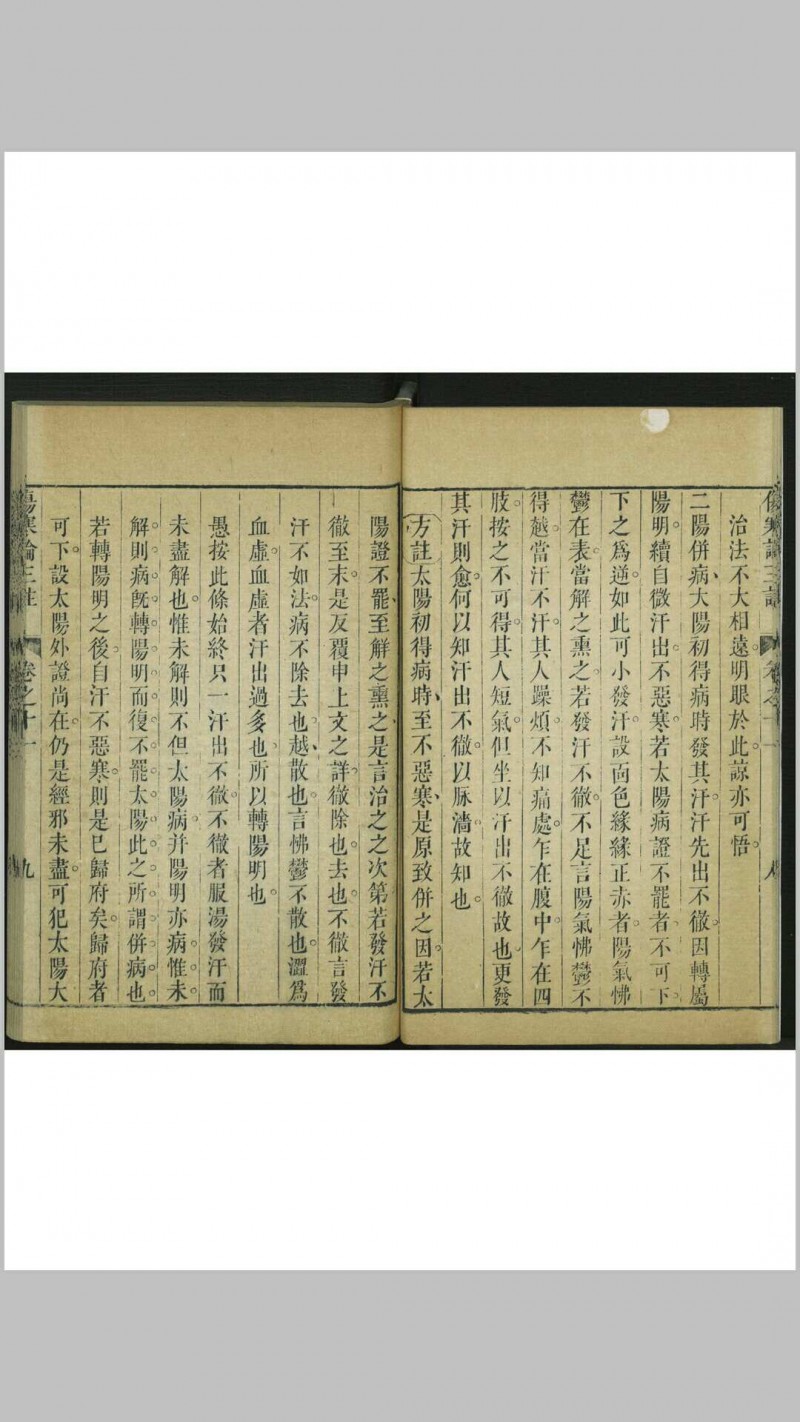 治法不大相遠明眼於此諒亦可悟。
二陽併病、大陽初得病時發其汗、汗先出不徹、因轉屬
陽明。續自微汗出、不惡寒。若太陽病證不罷者、不可下、
下之爲逆。如此可小發汗。設面色緣緣正赤者、陽氣怫
鬱在表、當解之熏之。若發汗不徹、不足言、陽氣怫鬱不
得越、當汗不汗、其人躁煩、不知痛處、乍在腹中、乍在四
肢、按之不可得、其人短氣、但坐以汗出不徹故也、更發
其汗則愈。何以知汗出不徹。以脉濇故知也。
方註太陽初得病時、至不惡寒、是原致併之因。若太
陽證不罷、至解之熏之、是言治之之次第。若發汗不
徹至末、是反覆申上文之詳。徹除也、去也。不徹言發
汗不如法、病不除去也。越、散也。言怫鬱不散也。濇爲
血虛、血虛者汗出過多也、所以轉陽明也。
愚按此條始終只一汗出不徹。不徹者、服湯發汗而
未盡解也。惟未解則不但太陽病、并陽明亦病。惟未
解則病旣轉陽明、而復不罷太陽、此之所謂併病也。
若轉陽明之後、自汗不惡寒、則是已歸府矣。歸府者
可下。設太陽外證尚在、仍是經邪未盡。可犯太陽大
傷寒論三註
卷之十一
九